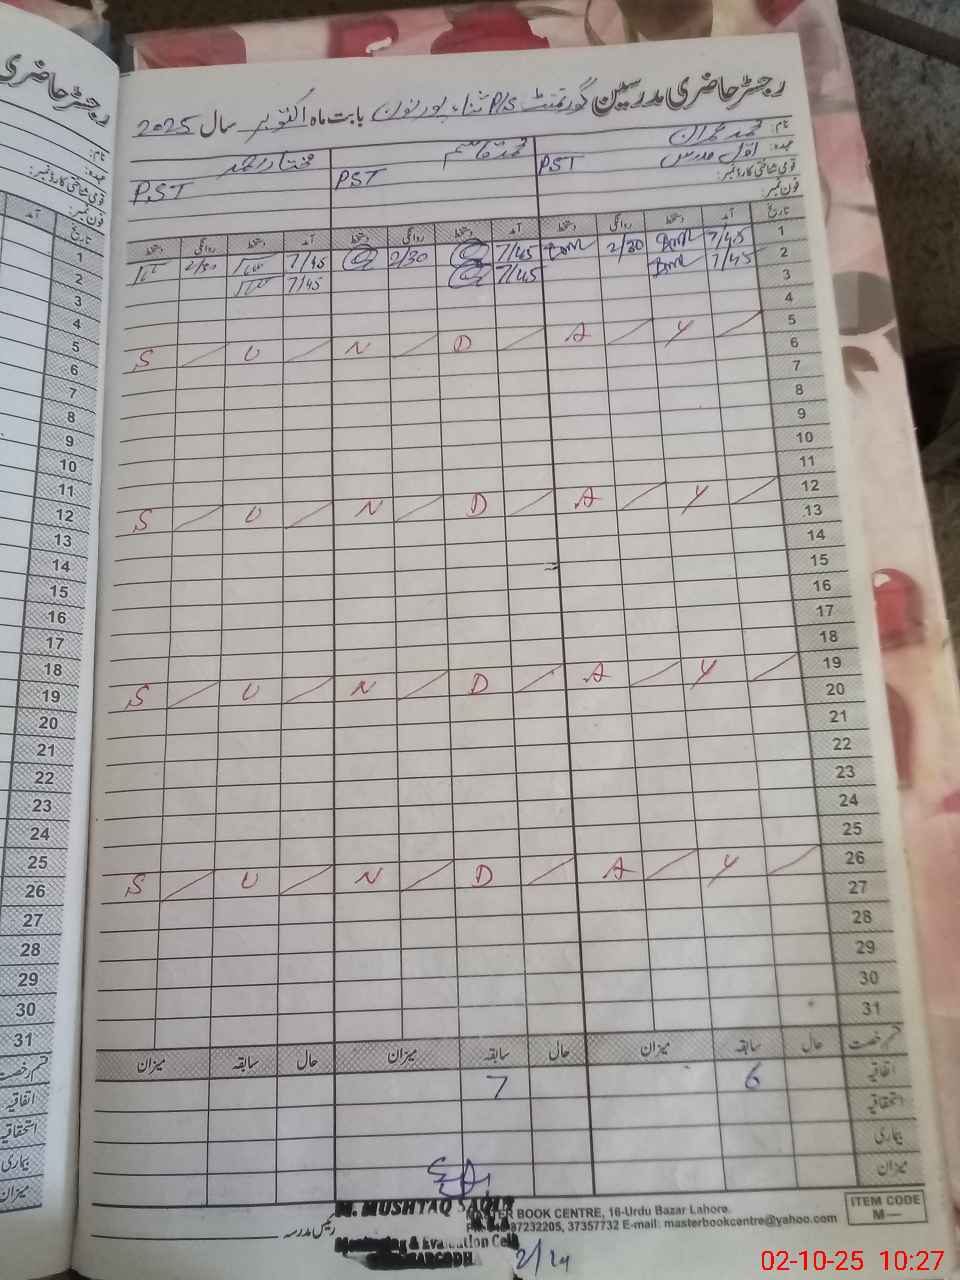 رجسٹر حاضری مدرسین گورنمنٹ P/S بابت ماہ اکتوبر سال 2025
نام: محمد عمران محمد قاسم مختار احمد
عہدہ: اول مدرس PST PST P.ST
قومی شناختی کارڈ نمبر:
فون نمبر:
تاریخ آمد دستخط روانگی دستخط آمد دستخط روانگی دستخط آمد دستخط روانگی دستخط
1 7/45 2/30 7/45 2/30 7/45 2/30
2 7/45 7/45 7/45
3
4
5 S U N D A Y
6
7
8
9
10
11
12 S U N D A Y
13
14
15
16
17
18
19 S U N D A Y
20
21
22
23
24
25
26 S U N D A Y
27
28
29
30
31
قسم رخصت حال سابقہ میزان حال سابقہ میزان حال سابقہ میزان
اتفاقیہ 6 7
استحقاقیہ
بیماری
میزان
رئیس مدرسہ
M. MUSHTAQ
Monitoring & Evaluation Cell
MASTER BOOK CENTRE, 16-Urdu Bazar Lahore.
37232205, 37357732 E-mail: masterbookcentre@yahoo.com
ITEM CODE
M—
رجسٹر حاضری
نام:
عہدہ:
قومی شناختی کارڈ نمبر:
فون نمبر:
تاریخ آمد
1
2
3
4
5
6
7
8
9
10
11
12
13
14
15
16
17
18
19
20
21
22
23
24
25
26
27
28
29
30
31
قسم رخصت
اتفاقیہ
استحقاقیہ
بیماری
میزان
02-10-25 10:27